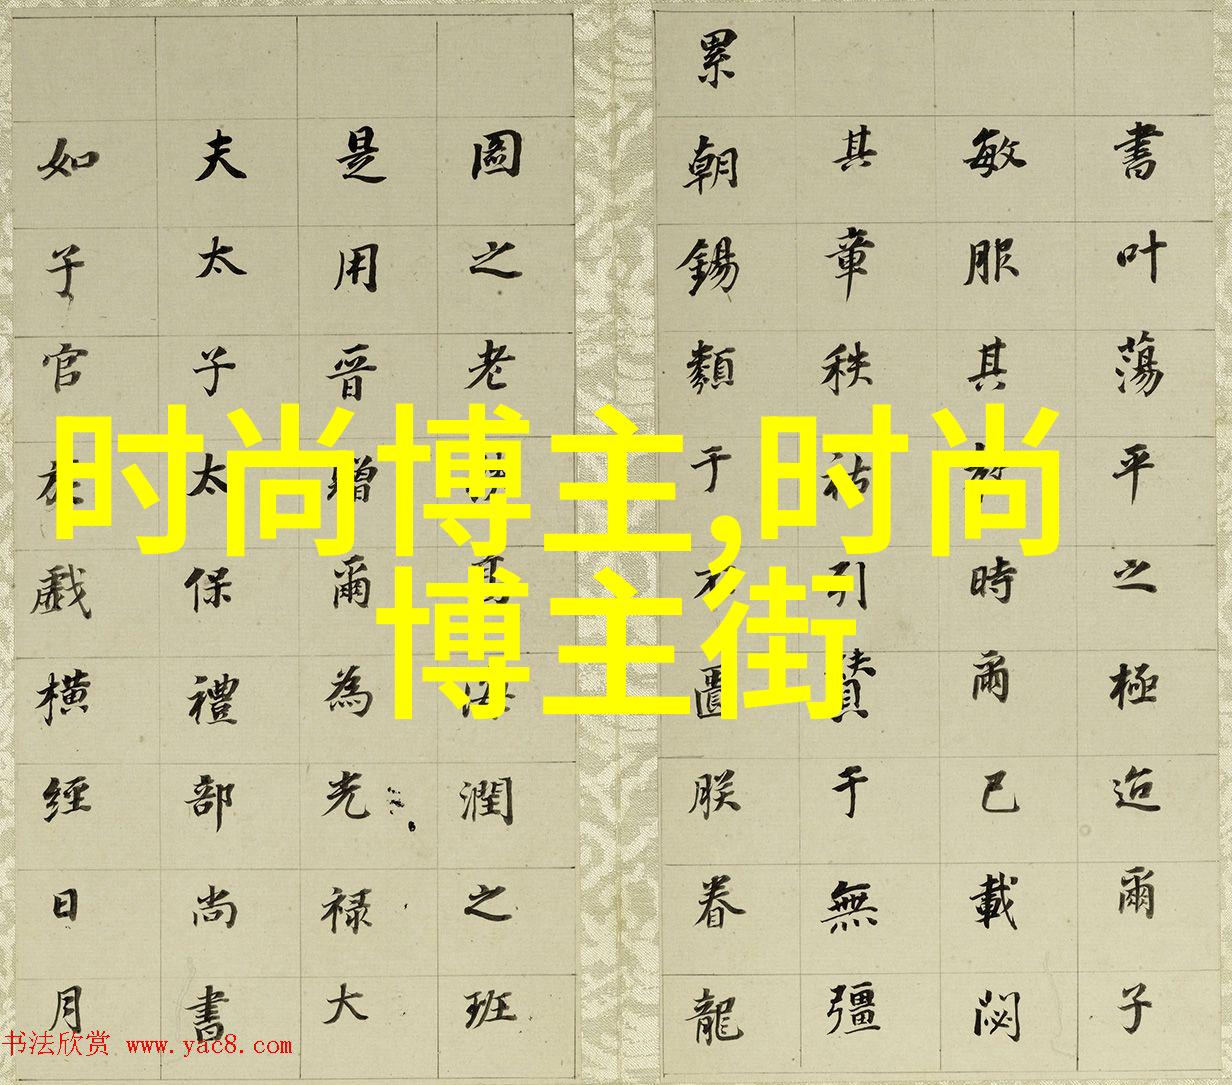 時尚博主,时尚
博主街
書叶蕩平之極迨爾子
敏服其時爾已載閟
其章秩祜引贊于無疆
累朝錫類于不匱朕眷龍
圖之老潤之班
是用晉贈爾為光祿大
夫太子太保禮部尚書
如子官於戲橫經日月
书法欣赏 www.yac8.com